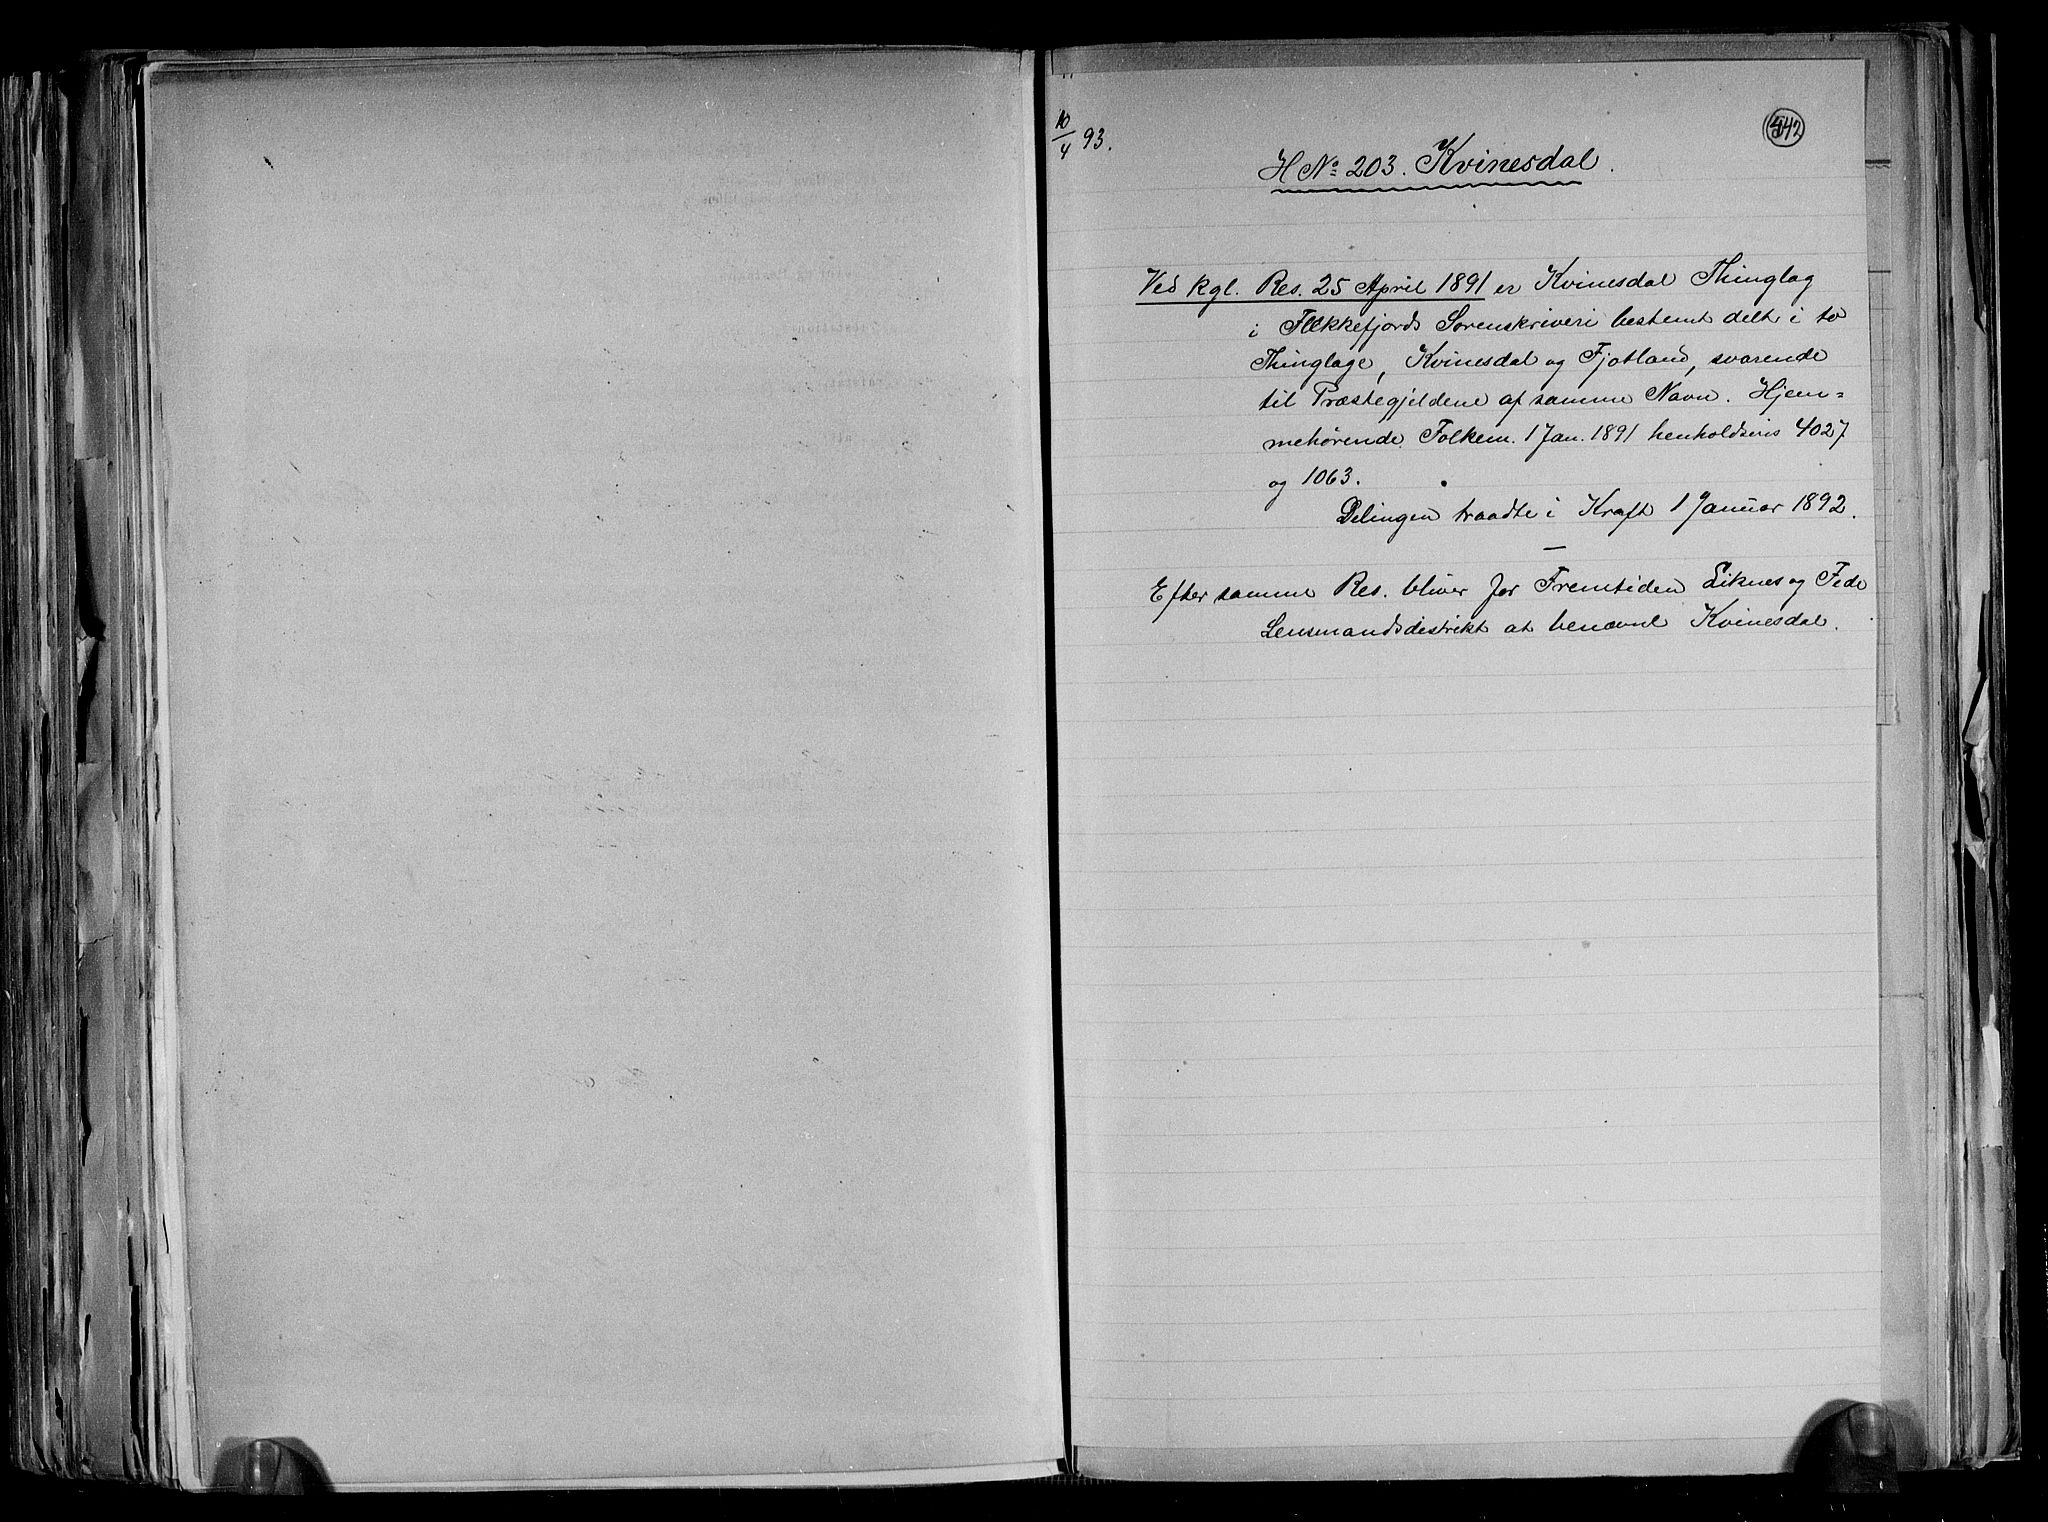 10/4 93.
542
H No 203. Kvinesdal.
Ved kgl. Res. 25 April 1891 er Kvinesdal Thinglag
i Flekkefjords Sorenskriveri bestemt delt i to
Thinglage, Kvinesdal og Fjotland, svarende
til Præstegjeldene af samme Navn. Hjem=
mehørende Folkem. 1 Jan. 1891 henholdsvis 4027
og 1063.
Delingen traadte i Kraft 1 Januar 1892.
—
Efter samme Res. bliver for Fremtiden Liknes og Fede
Lensmandsdistrikt at benævne Kvinesdal.